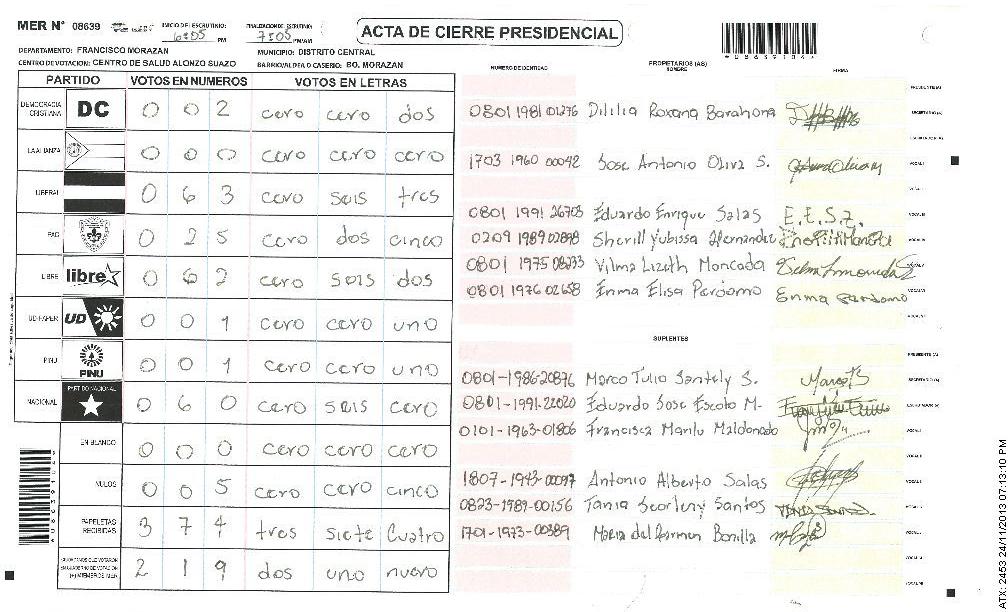 MER N° 08639 INICIO DEL ESCRUTINIO: 6:05 PM FINALIZACION DE ESCRUTINIO: 7:05 PM/AM ACTA DE CIERRE PRESIDENCIAL
DEPARTAMENTO: FRANCISCO MORAZAN MUNICIPIO: DISTRITO CENTRAL
CENTRO DE VOTACION: CENTRO DE SALUD ALONZO SUAZO BARRIO/ALDEA O CASERIO: BO. MORAZAN
NUMERO DE IDENTIDAD PROPIETARIOS (AS) NOMBRE FIRMA
PARTIDO VOTOS EN NUMEROS VOTOS EN LETRAS
DEMOCRACIA CRISTIANA DC 0 0 2 cero cero dos
LA ALIANZA 0 0 0 cero cero cero
LIBERAL 0 6 3 cero seis tres
PAC 0 2 5 cero dos cinco
LIBRE libre 0 6 2 cero seis dos
UD-FAPER UD 0 0 1 cero cero uno
PINU PINU 0 0 1 cero cero uno
NACIONAL PARTIDO NACIONAL 0 6 0 cero seis cero
EN BLANCO 0 0 0 cero cero cero
NULOS 0 0 5 cero cero cinco
PAPELETAS RECIBIDAS 3 7 4 tres siete cuatro
CIUDADANOS QUE VOTARON EN CUADERNO DE VOTACION (+) MIEMBROS MER 2 1 9 dos uno nueve
PRESIDENTE (A)
0801 1981 01276 Dililia Roxana Barahona SECRETARIO (A)
ESCRUTADOR (A)
1703 1960 00042 Jose Antonio Oliva S. VOCAL I
VOCAL II
0801 1991 26703 Eduardo Enrique Salas E.E.S.Z. VOCAL III
0209 1989 02898 Sherill Yubissa Hernandez VOCAL IV
0801 1975 08233 Vilma Lizeth Moncada VOCAL V
0801 1976 02658 Enma Elisa Perdomo Enma Perdomo VOCAL VI
VOCAL VII
SUPLENTES
PRESIDENTE (A)
0801-1986-20876 Marco Tulio Santely S. SECRETARIO (A)
0801-1991-22020 Eduardo Jose Escoto M. ESCRUTADOR (A)
0101-1963-01806 Francisca Maniu Maldonado VOCAL I
VOCAL II
1807-1943-00097 Antonio Alberto Salas VOCAL III
0823-1989-00156 Tania Scarleny Santos VOCAL IV
1701-1973-00389 Maria del Carmen Bonilla VOCAL V
VOCAL VI
VOCAL VII
ATX: 2453 24/11/2013 07:13:10 PM